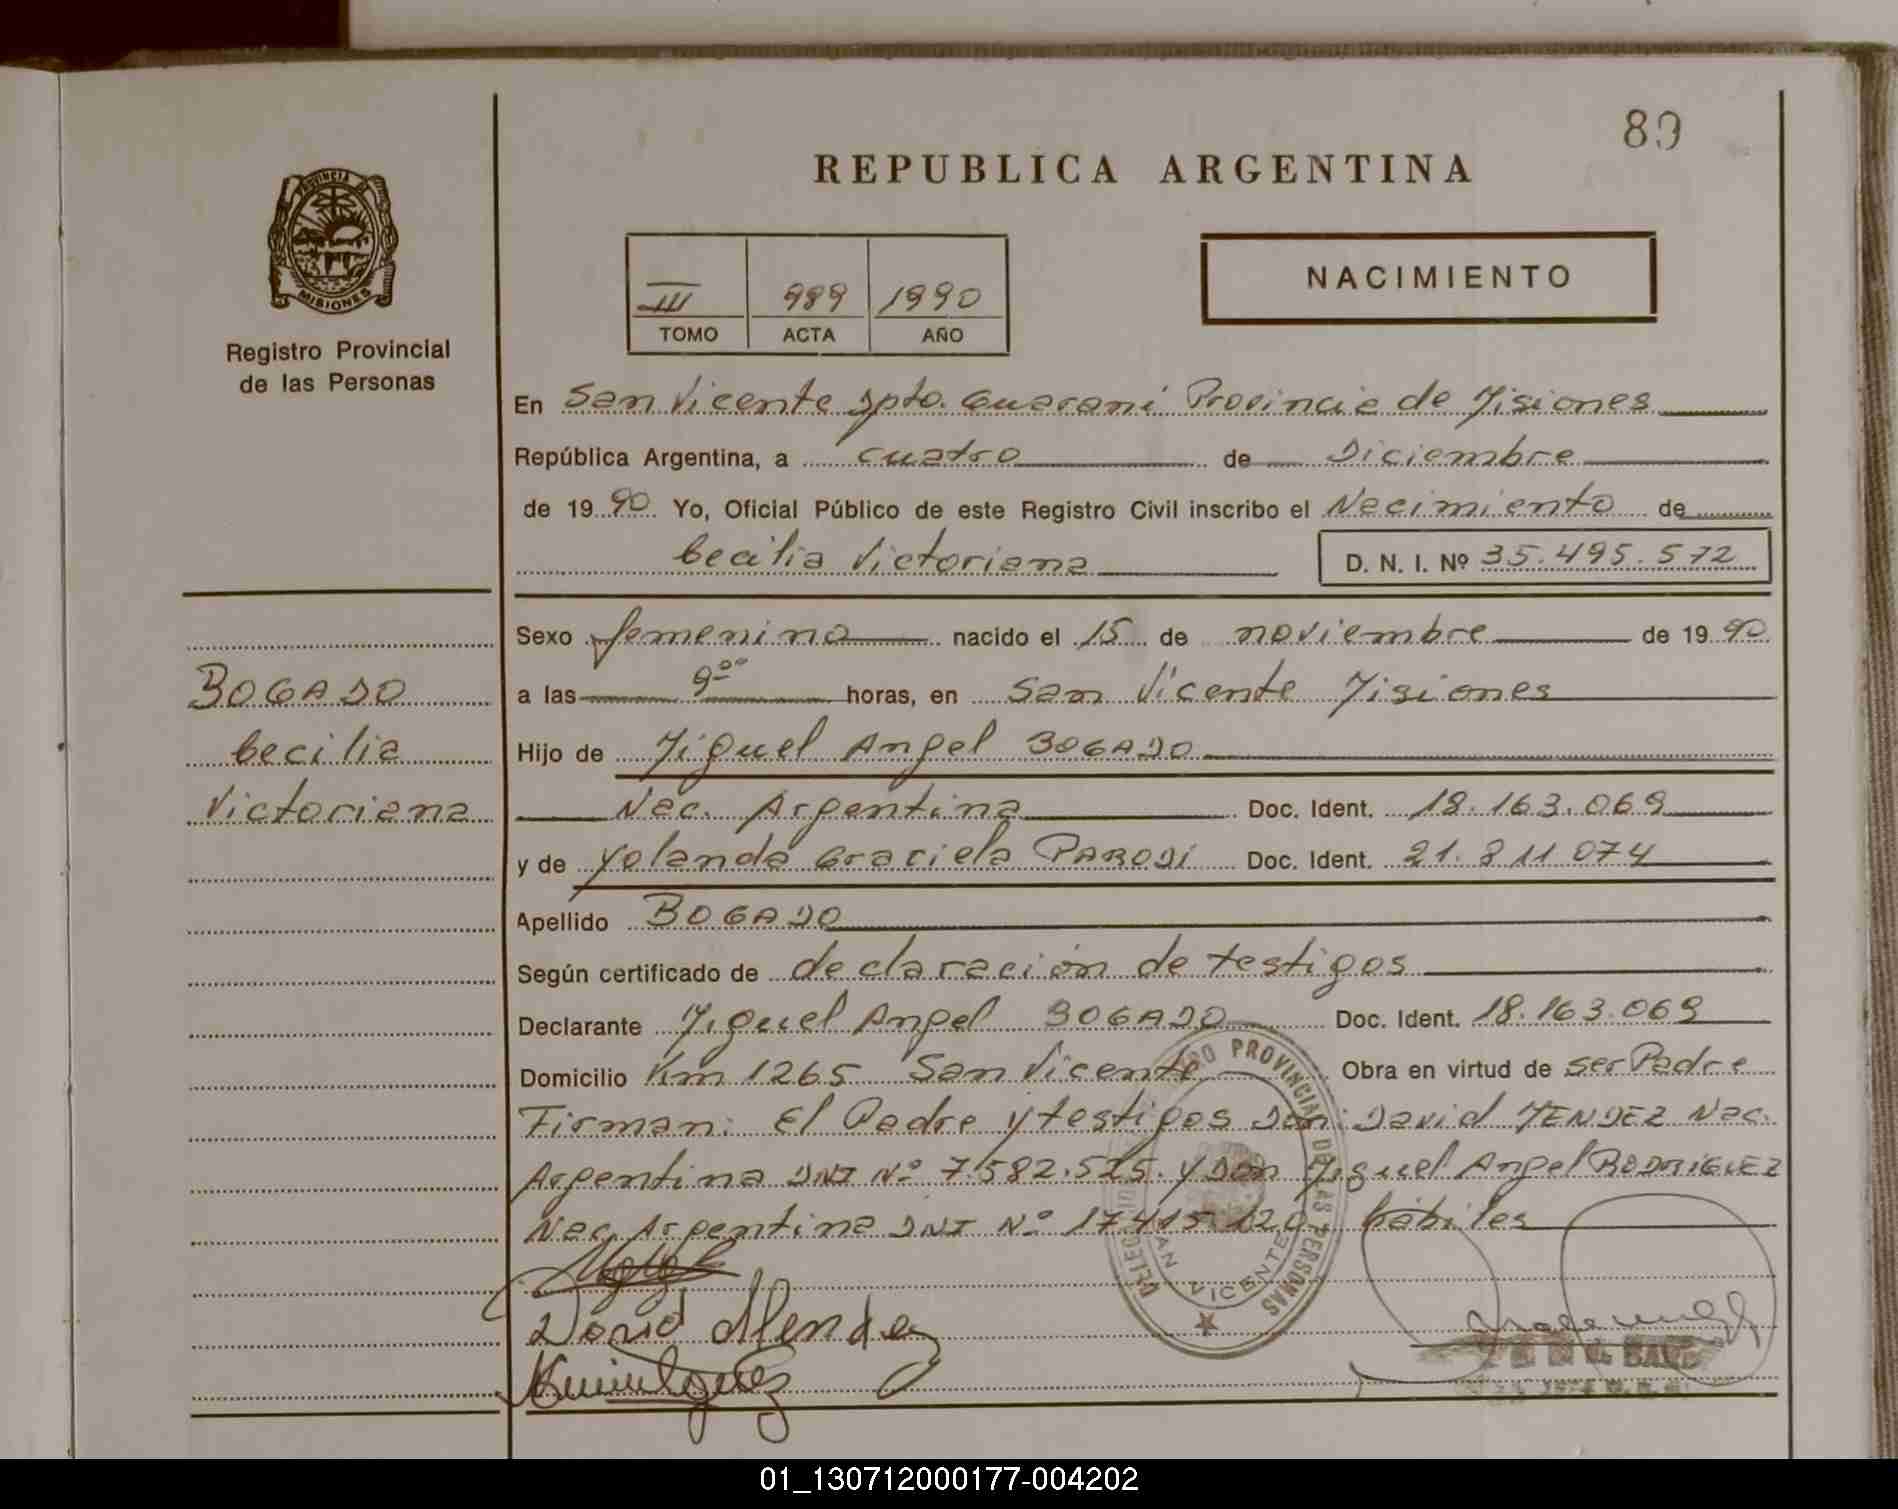 80
REPUBLICA ARGENTINA
PROVINCIA DE
MISIONES
Registro Provincial
de las Personas
III 989 1990
TOMO ACTA AÑO
NACIMIENTO
En San Vicente Dpto. Guarani Provincia de Misiones
República Argentina, a cuatro de Diciembre
de 1990 Yo, Oficial Público de este Registro Civil inscribo el Nacimiento de
Cecilia Victoriana D. N. I. Nº 35.495.572
Sexo femenino nacido el 15 de noviembre de 1990
BOGADO
Cecilia
Victoriana
a las 9°° horas, en San Vicente Misiones
Hijo de Miguel Angel BOGADO
Nac. Argentina Doc. Ident. 18.163.069
y de Yolanda Graciela PARODI Doc. Ident. 21.811.074
Apellido BOGADO
Según certificado de declaración de testigos
Declarante Miguel Angel BOGADO Doc. Ident. 18.163.069
Domicilio Km 1265 San Vicente Obra en virtud de ser Padre
Firman: El Padre y testigos Don: David MENDEZ Nac.
Argentina DNI Nº 7.582.525. y Don Miguel Angel RODRIGUEZ
Nac. Argentina DNI Nº 17.415.120 hábiles
PROVINCIAL DE LAS PERSONAS
SAN VICENTE
David Mendez
01_130712000177-004202